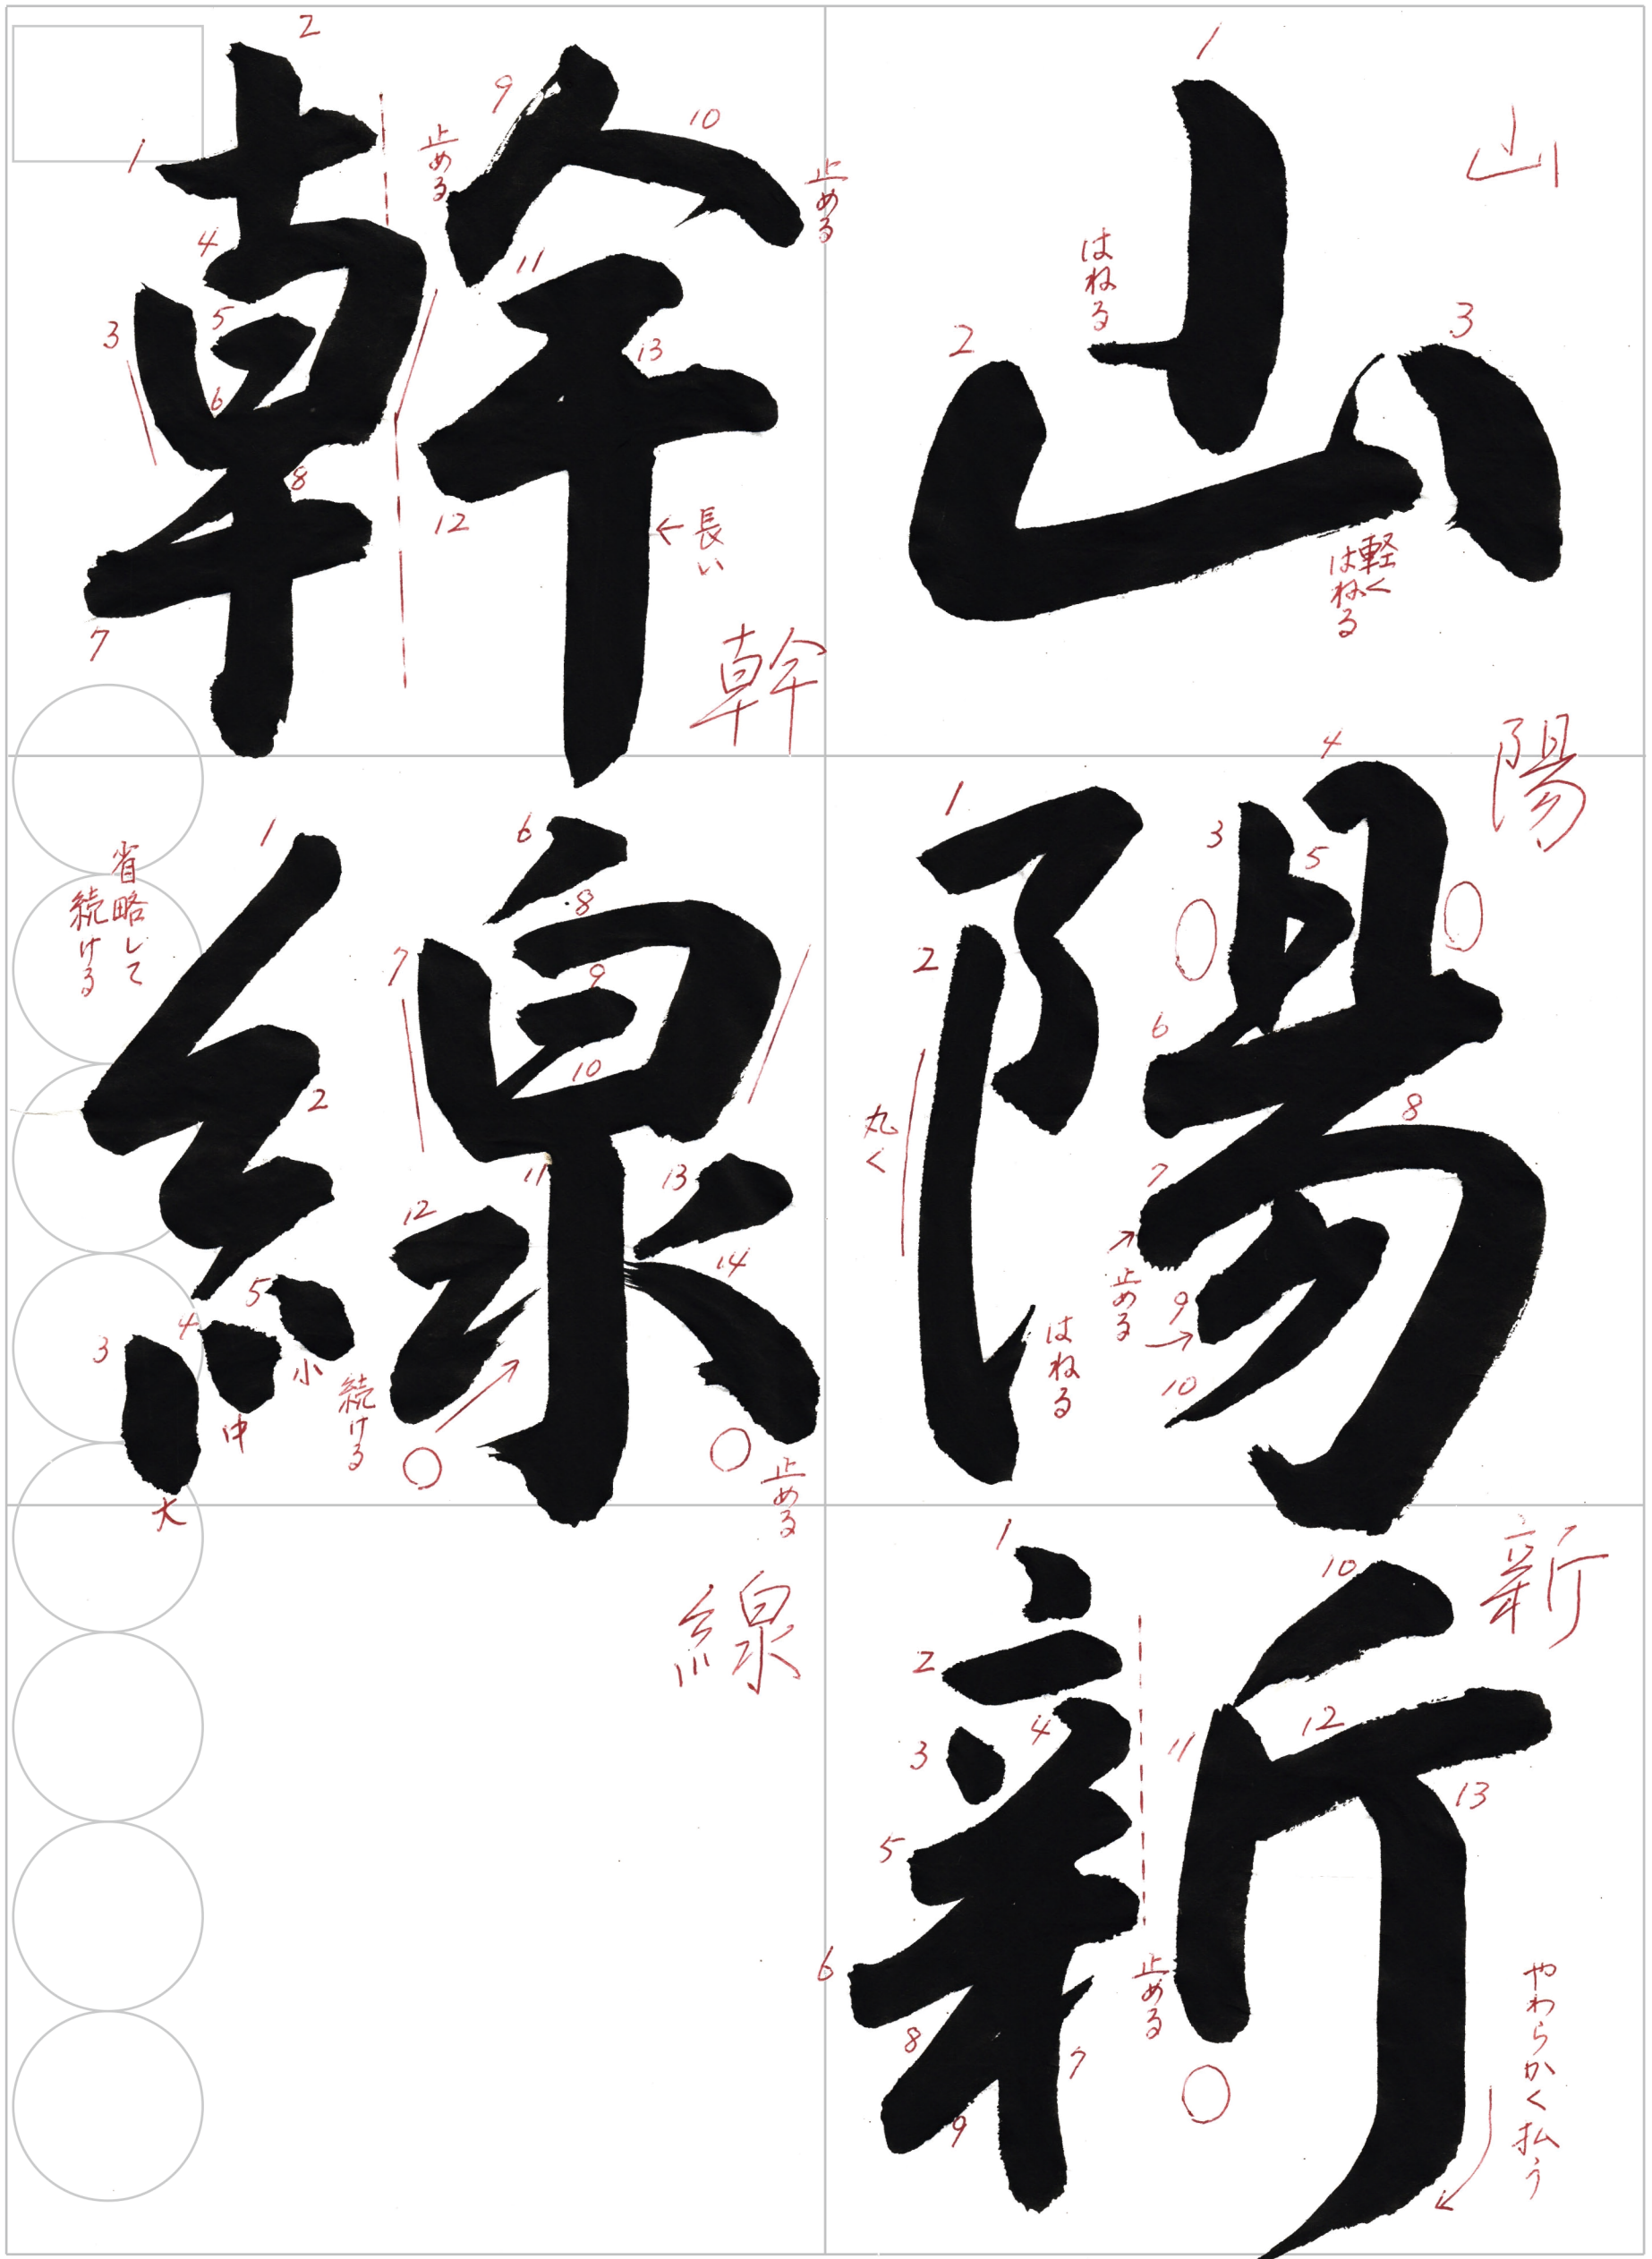 山陽新
幹線
1
2
3
はねる
軽く
はねる
山
1
2
3
4
5
6
7
8
9
10
丸く
はねる
止める
陽
1
2
3
4
5
6
7
8
9
10
11
12
13
止める
やわらかく払う
新
1
2
3
4
5
6
7
8
9
10
11
12
13
止める
止める
長い
幹
1
2
3
4
5
6
7
8
9
10
11
12
13
14
省略して
続ける
大
中
小
続ける
止める
線